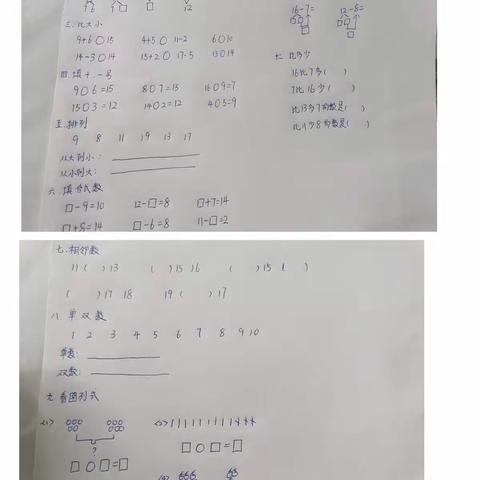 6 1 12
16-7= 12-8=
三. 比大小
9+6○15 4+5○11-2 6○10
14-3○14 15+2○17-5 13○14
四. 填+.-号
9○6=15 8○7=15 16○9=7
15○3=12 14○2=12 4○5=9
五. 排列
9 8 11 19 13 17
从大到小:
从小到大:
六. 填
□-9=10 12-□=8 □+7=14
□+8=14 □-6=8 11-□=2
七. 比多少
16比7多( )
7比16少( )
比13多7的数是( )
比19少8的数是( )
七. 相邻数
11( )13 ( )15 16 ( )15( )
( )17 18 19( )17
八. 单双数
1 2 3 4 5 6 7 8 9 10
单数:
双数:
九. 看图列式
<1> <2>
?
□○□=□ □○□=□